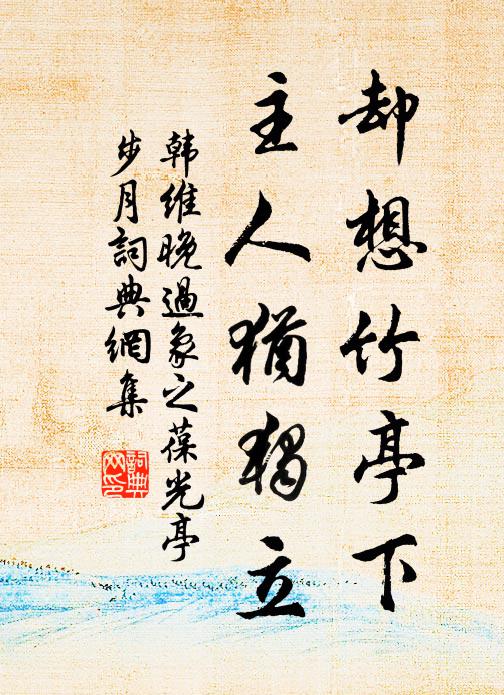 却想竹亭下
主人猶獨立
韩維晚過象之葆光亭
步月詞典網集
詞典网印